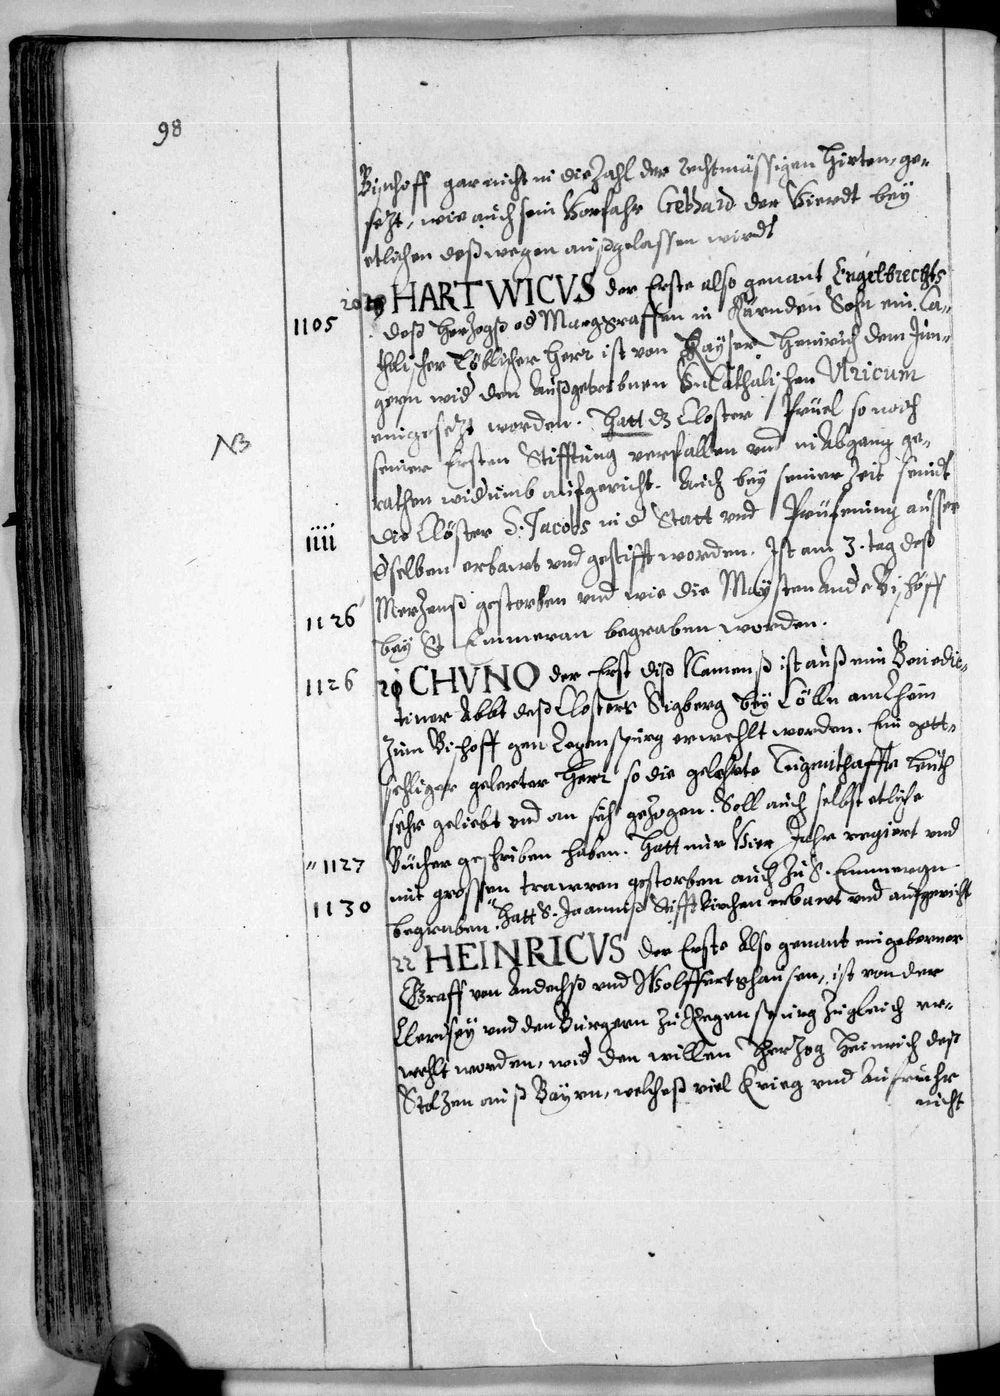 98
Bischoff gar nicht in die Zahl der rechtmässigen Hirten, ge-
sezt, wie auch sein Vorfahr Gebhard der Vierdt bey
etlichen desswegen aussgelassen wirdt
20 HARTWICVS der Erste also genant Engelbrechts
1105 dess Herzogss od Marggraffen in Kärnden Sohn ein Ca-
tholischer Löblicher Herr ist von Kayser Heinrich dem Jün-
gern wid den Aussgetribnen VnCatholischen Vlricum
eingesezt worden. Hatt dz Closter Prüel so nach
NB seiner Ersten Stifftung verfallen vnd in Abgang ge-
rathen widumb aufgericht. Auch bey seiner Zeit seindt
1111 die Clöster S. Jacobs in d Statt vnd Prüfening ausser
dselben erbawt vnd gestifft worden. Ist am 3. tag dess
1126 Merzenss gestorben vnd wie die Maysten And e Bischöff
bey St Emmeran begraben worden.
1126 21 CHVNO der Erst diss Namenss ist auss ein Benedic-
tiner Abbt dess Closters Sigberg bey Cölln am Rhein
zum Bischoff gen Regenspurg erwehlt worden. Ein gott-
sehliger gelerter Herr so die gelehrte Tugenthaffte Leuth
sehr geliebt vnd an sich gezogen. Soll auch selbst etliche
" 1127 Bücher geschriben haben. Hatt nur Vier Jahr regiert vnd
mit grossen trawren gestorben auch zu S. Emmeran
1130 begraben. " Hatt S. Joanniss Stifftkirchen erbawt vnd aufgericht
22 HEINRICVS der Erste Also genant ein geborner
Graff von Andechss vnd Wolffertshausen, ist von der
Clerisey vnd den Burgern zu Regenspurg zugleich er-
wehlt worden, wid den willen Herzog Heinrich dess
Stolzen auss Bayrn, welchess viel Krieg vnd Aufruhr
nicht